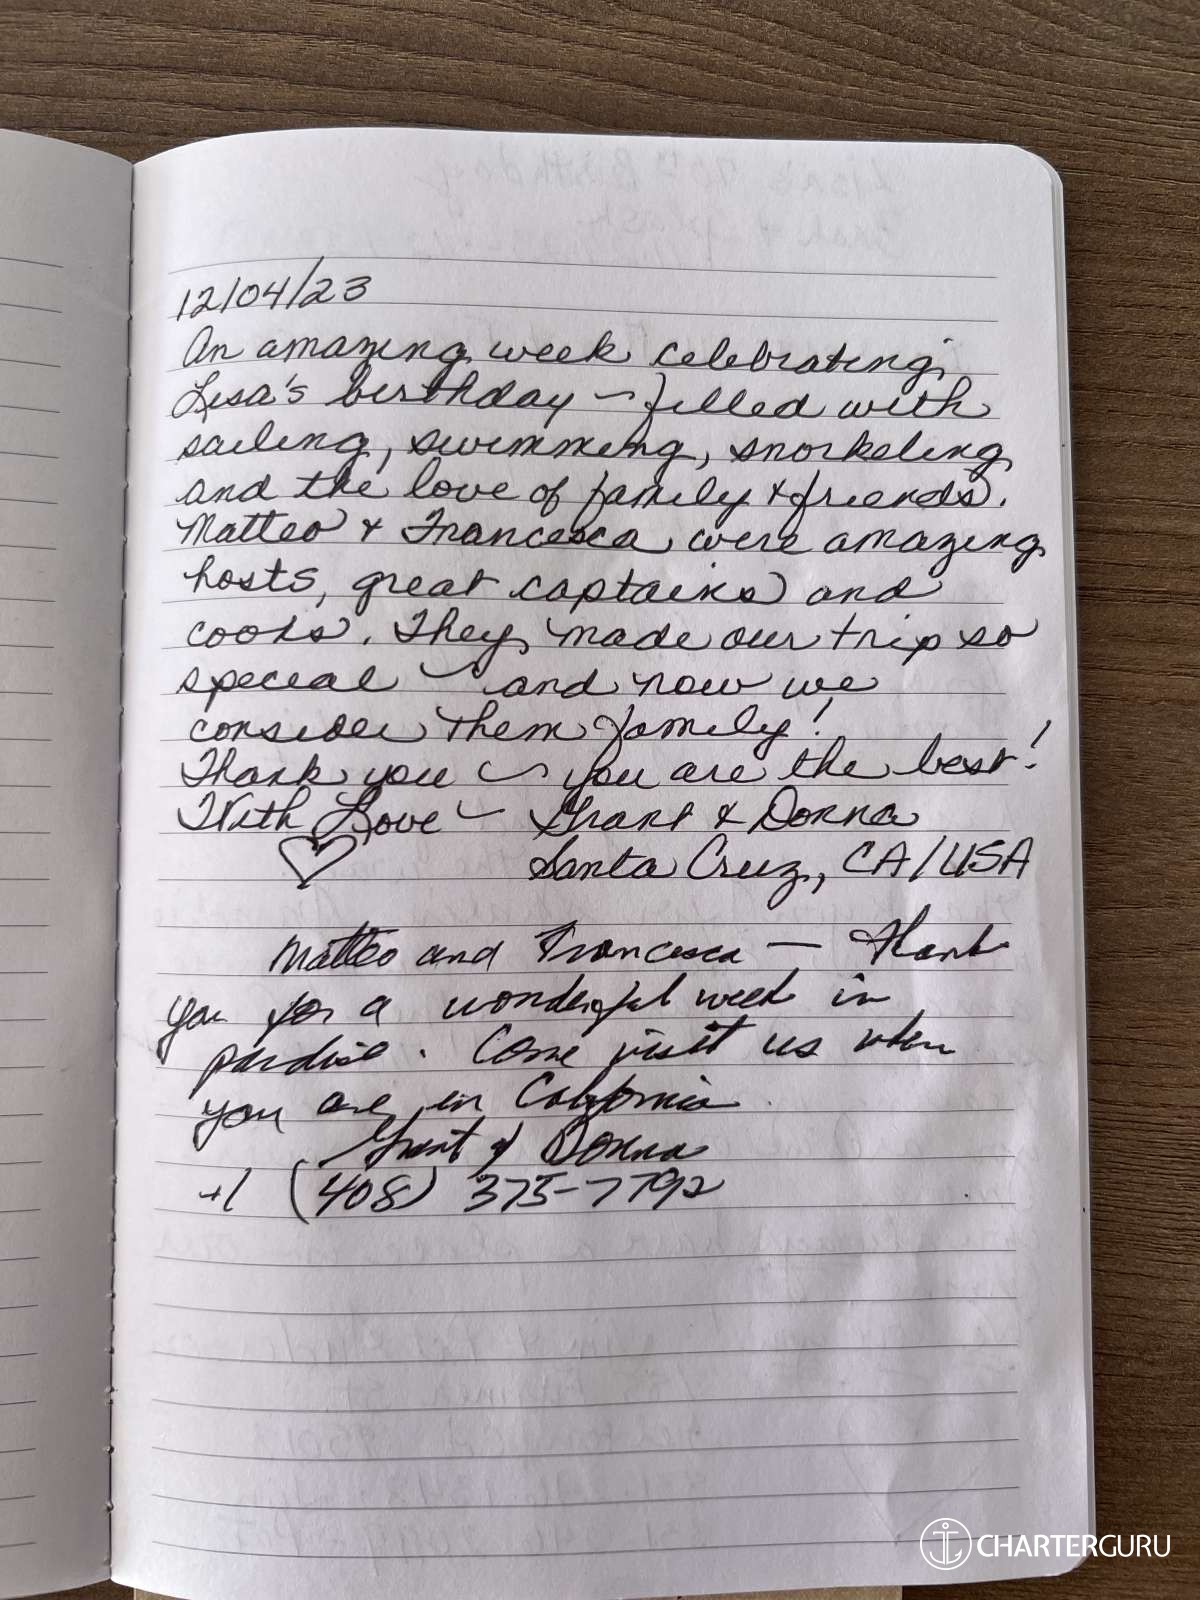 12/04/23
An amazing week celebrating
Lisa's birthday ~ filled with
sailing, swimming, snorkeling
and the love of family & friends.
Matteo & Francesca were amazing
hosts, great captains and
cooks. They made our trip so
special ~ and now we
consider them family!
Thank you ~ you are the best!
With Love ~ Grant & Donna
Santa Cruz, CA/USA
Matteo and Francesca — Thank
you for a wonderful week in
pardise. Come visit us when
you are in California
Grant & Donna
+1 (408) 375-7792
CHARTERGURU